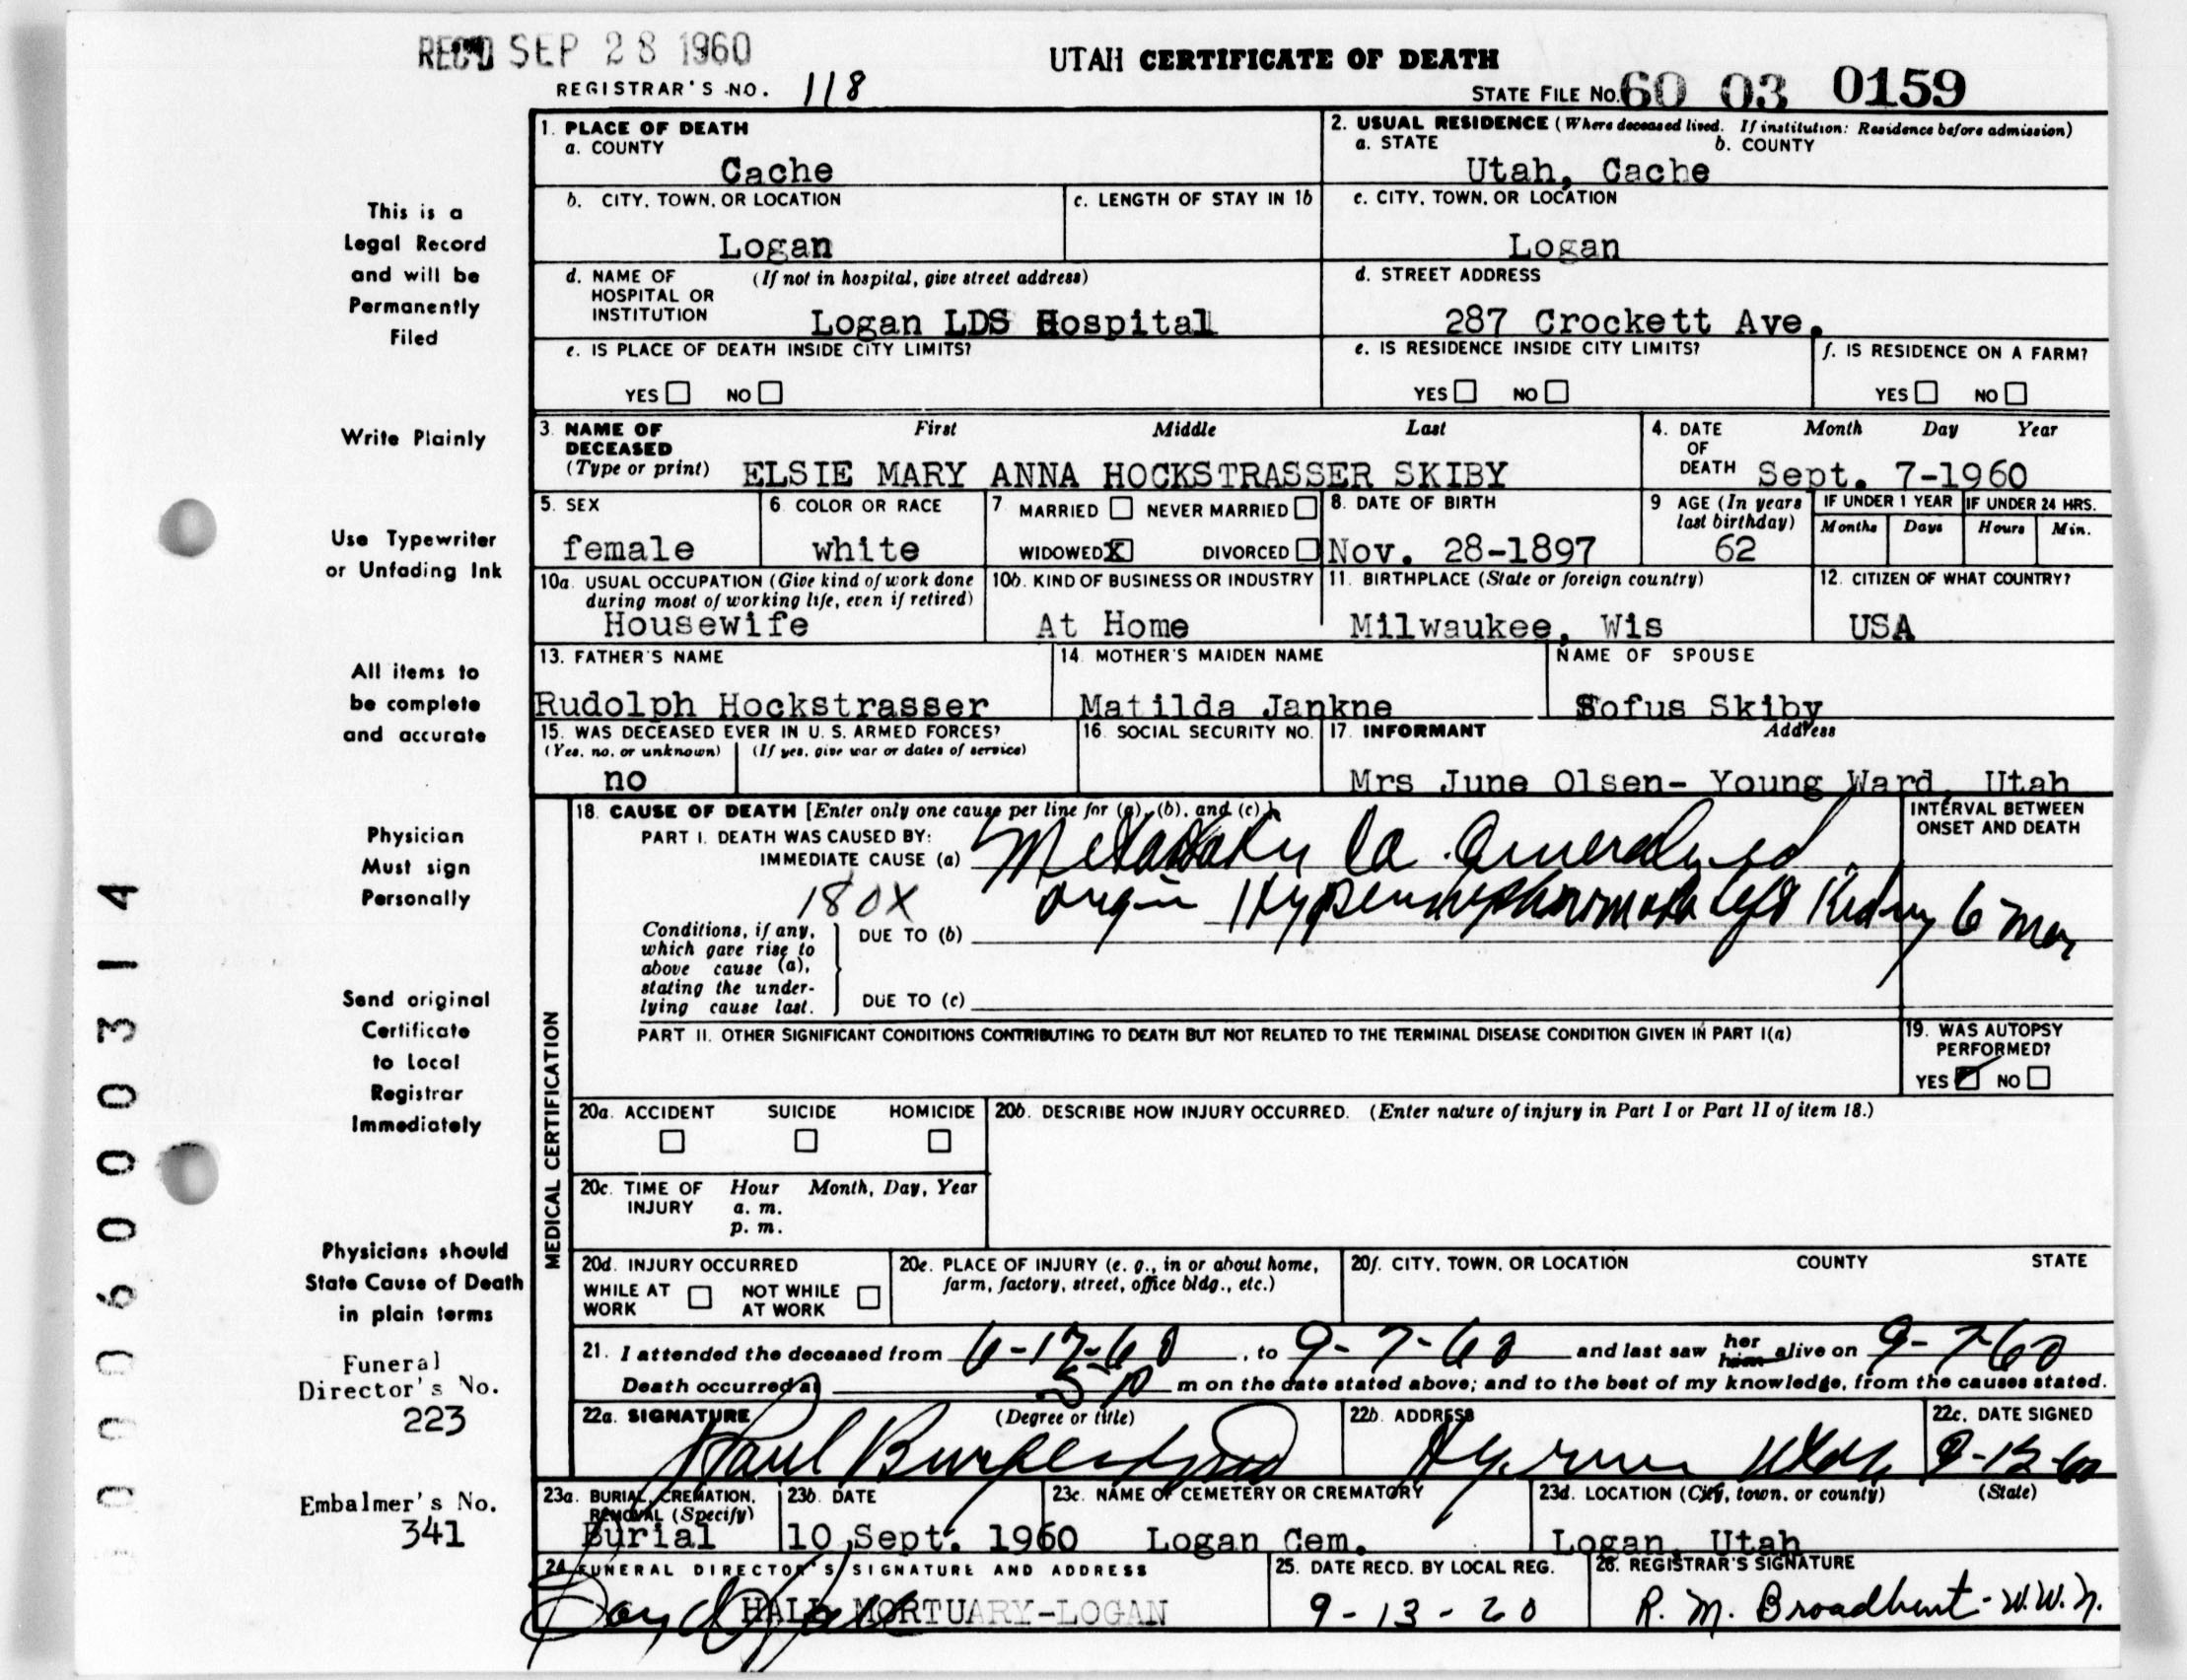 REC'D SEP 28 1960
UTAH CERTIFICATE OF DEATH
REGISTRAR'S NO. 118
STATE FILE NO. 60 03 0159
This is a
Legal Record
and will be
Permanently
Filed
Write Plainly
Use Typewriter
or Unfading Ink
All items to
be complete
and accurate
Physician
Must sign
Personally
Send original
Certificate
to Local
Registrar
Immediately
Physicians should
State Cause of Death
in plain terms
Funeral
Director's No.
223
Embalmer's No.
341
0006000314
1. PLACE OF DEATH
a. COUNTY
Cache
2. USUAL RESIDENCE (Where deceased lived. If institution: Residence before admission)
a. STATE b. COUNTY
Utah, Cache
b. CITY, TOWN, OR LOCATION
Logan
c. LENGTH OF STAY IN 1b
c. CITY, TOWN, OR LOCATION
Logan
d. NAME OF (If not in hospital, give street address)
HOSPITAL OR
INSTITUTION Logan LDS Hospital
d. STREET ADDRESS
287 Crockett Ave.
e. IS PLACE OF DEATH INSIDE CITY LIMITS?
YES NO
e. IS RESIDENCE INSIDE CITY LIMITS?
YES NO
f. IS RESIDENCE ON A FARM?
YES NO
3. NAME OF First Middle Last
DECEASED
(Type or print) ELSIE MARY ANNA HOCKSTRASSER SKIBY
4. DATE Month Day Year
OF
DEATH Sept. 7-1960
5. SEX
female
6. COLOR OR RACE
white
7. MARRIED NEVER MARRIED
WIDOWED X DIVORCED
8. DATE OF BIRTH
Nov. 28-1897
9 AGE (In years
last birthday)
62
IF UNDER 1 YEAR
Months Days
IF UNDER 24 HRS.
Hours Min.
10a. USUAL OCCUPATION (Give kind of work done
during most of working life, even if retired)
Housewife
10b. KIND OF BUSINESS OR INDUSTRY
At Home
11. BIRTHPLACE (State or foreign country)
Milwaukee, Wis
12. CITIZEN OF WHAT COUNTRY?
USA
13. FATHER'S NAME
Rudolph Hockstrasser
14. MOTHER'S MAIDEN NAME
Matilda Jankne
NAME OF SPOUSE
Sofus Skiby
15. WAS DECEASED EVER IN U. S. ARMED FORCES?
(Yes, no, or unknown) (If yes, give war or dates of service)
no
16. SOCIAL SECURITY NO.
17. INFORMANT Address
Mrs June Olsen- Young Ward, Utah
MEDICAL CERTIFICATION
18. CAUSE OF DEATH [Enter only one cause per line for (a), (b), and (c).]
PART I. DEATH WAS CAUSED BY:
IMMEDIATE CAUSE (a) Metastatic Ca. Generalized
INTERVAL BETWEEN
ONSET AND DEATH
180X
origin Hypernephroma left Kidney 6 mos
Conditions, if any,
which gave rise to
above cause (a),
stating the under-
lying cause last.
DUE TO (b)
DUE TO (c)
PART II. OTHER SIGNIFICANT CONDITIONS CONTRIBUTING TO DEATH BUT NOT RELATED TO THE TERMINAL DISEASE CONDITION GIVEN IN PART I(a)
19. WAS AUTOPSY
PERFORMED?
YES NO
20a. ACCIDENT SUICIDE HOMICIDE
20b. DESCRIBE HOW INJURY OCCURRED. (Enter nature of injury in Part I or Part II of item 18.)
20c. TIME OF Hour Month, Day, Year
INJURY a. m.
p. m.
20d. INJURY OCCURRED
WHILE AT NOT WHILE
WORK AT WORK
20e. PLACE OF INJURY (e. g., in or about home,
farm, factory, street, office bldg., etc.)
20f. CITY, TOWN, OR LOCATION COUNTY STATE
21. I attended the deceased from 6-17-60, to 9-7-60 and last saw her him alive on 9-7-60
Death occurred at 5 p m on the date stated above; and to the best of my knowledge, from the causes stated.
22a. SIGNATURE (Degree or title)
Paul
22b. ADDRESS
Hyrum Utah
22c. DATE SIGNED
23a. BURIAL, CREMATION,
REMOVAL (Specify)
Burial
23b. DATE
10 Sept. 1960
23c. NAME OF CEMETERY OR CREMATORY
Logan Cem.
23d. LOCATION (City, town, or county) (State)
Logan, Utah
24. FUNERAL DIRECTOR'S SIGNATURE AND ADDRESS
HALL MORTUARY-LOGAN
25. DATE RECD. BY LOCAL REG.
9-13-20
26. REGISTRAR'S SIGNATURE
R. M. Broadbent - W.W.N.